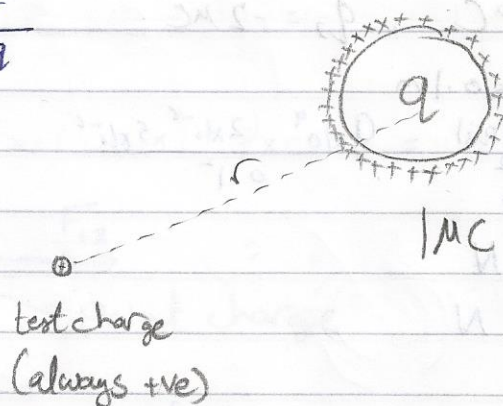 q
q
r
1 MC
test charge
(always +ve)